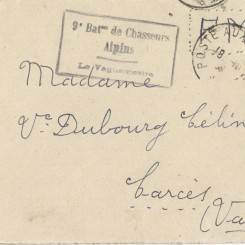 9e Bat.on de Chasseurs
Alpins
Le Vaguemestre
POSTE AUX
18
Madame
Ve Dubourg Célin
Carcès
(Va